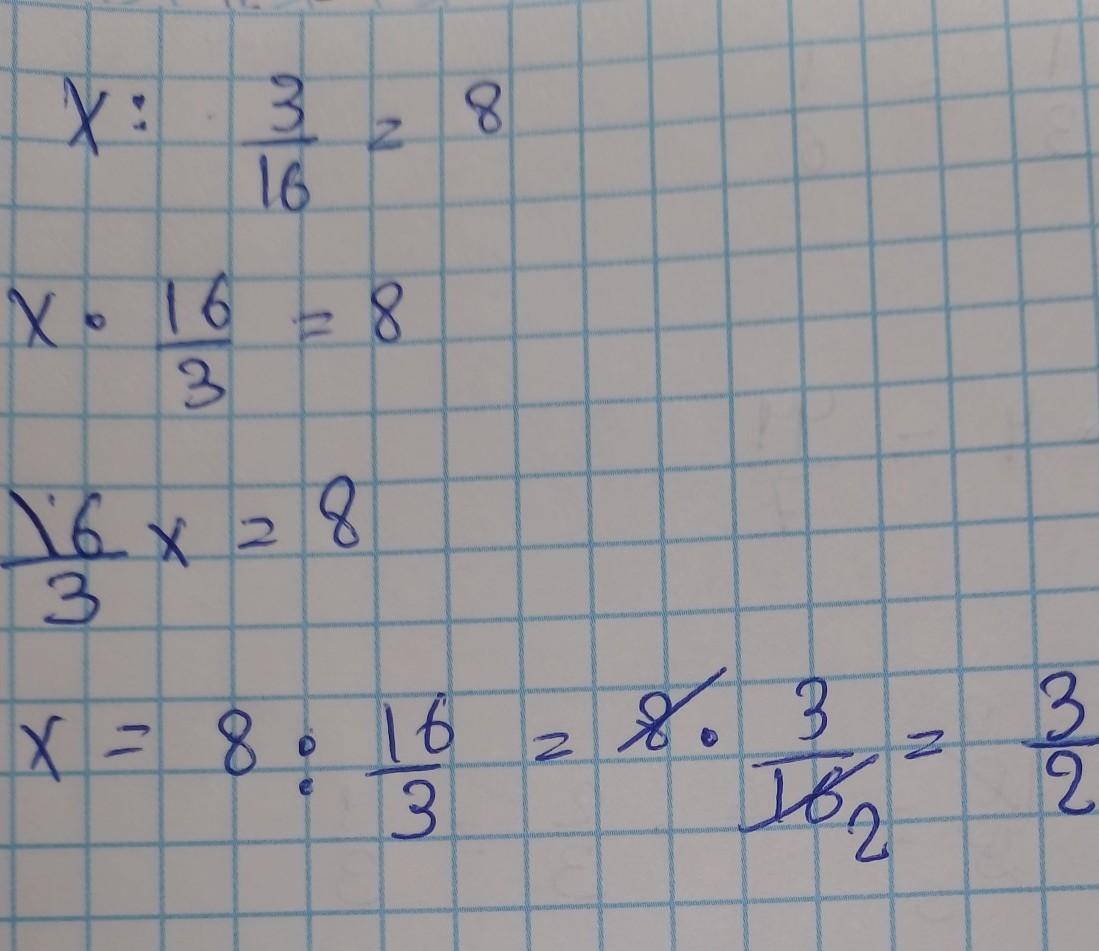 x : 3/16 = 8
x · 16/3 = 8
16/3 x = 8
x = 8 : 16/3 = 8 · 3/16 2 = 3/2